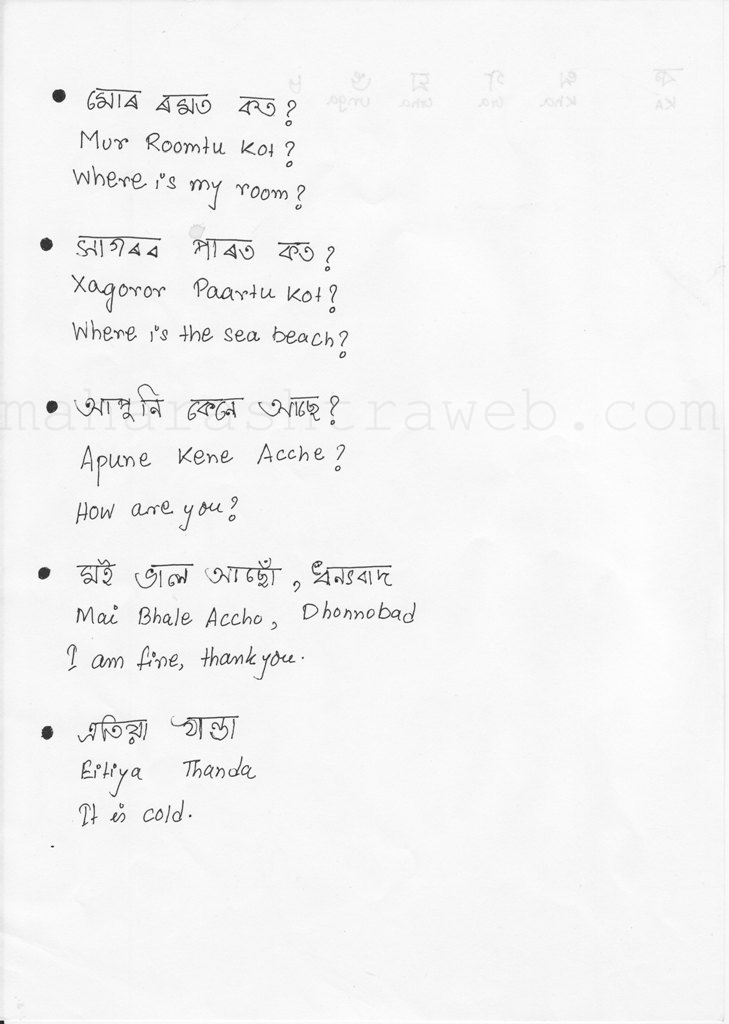 মোৰ ৰুমত কত?
Mur Roomtu Kot?
Where is my room?
সাগৰৰ পাৰত কত?
Xagoror Paartu Kot?
Where is the sea beach?
আপুনি কেনে আছে?
Apune Kene Acche?
How are you?
মই ভাল আছোঁ, ধন্যবাদ
Mai Bhale Accho, Dhonnobad
I am fine, thank you.
এতিয়া ঠাণ্ডা
Eitiya Thanda
It is cold.
maharashtraweb.com